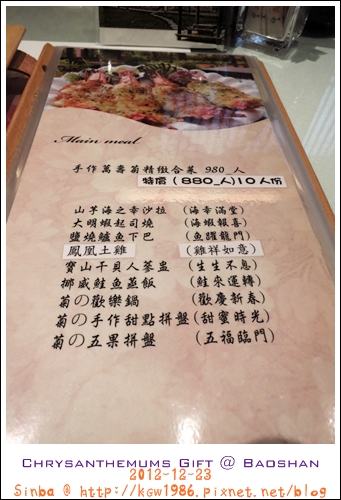 Main meal
手作萬壽菊精緻合菜 980 人
特價(880_人)10人份
山芋海之幸沙拉 (海幸滿堂)
大明蝦起司燒 (海蝦報喜)
鹽燒鱸魚下巴 (魚躍龍門)
鳳凰土雞 (雞祥如意)
寶山干貝人蔘盅 (生生不息)
挪威鮭魚蒸飯 (鮭來運轉)
菊の歡樂鍋 (歡慶新春)
菊の手作甜點拼盤(甜蜜時光)
菊の五果拼盤 (五福臨門)
Chrysanthemums Gift @ Baoshan
2012-12-23
Sinba @ http://kgw1986.pixnet.net/blog